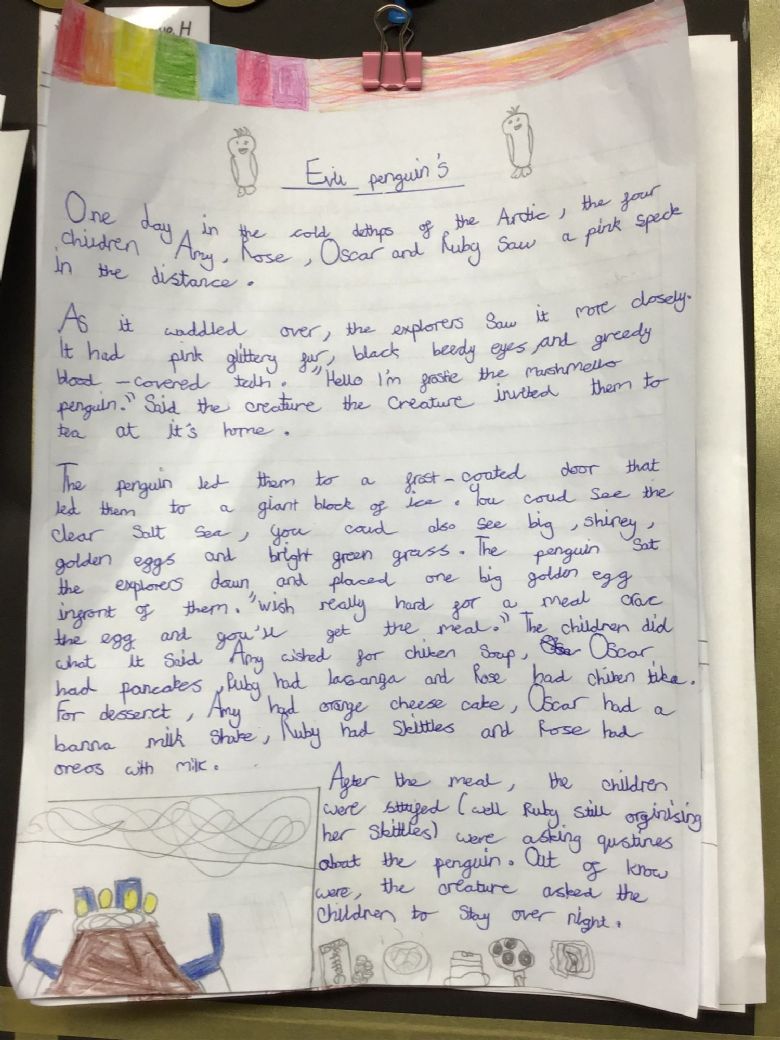 H
Evil penguin's
One day in the cold dethps of the Arctic, the four
children Amy, Rose, Oscar and Ruby saw a pink speck
in the distance.
As it waddled over, the explorers saw it more closely.
It had pink glittery fur, black beedy eyes, and greedy
blood-covered teeth. "Hello I'm frostie the marshmello
penguin." Said the creature the creature invited them to
tea at it's home.
The penguin led them to a frost-coated door that
led them to a giant block of ice. You coud see the
clear salt sea, you coud also see big, shiney,
golden eggs and bright green grass. The penguin sat
the explorers down and placed one big golden egg
infront of them. "wish really hard for a meal crac
the egg and you'll get the meal." The children did
what it said Amy wished for chiken soup, Oscar
had pancakes, Ruby had lasanga and Rose had chiken tika.
For desseret, Amy had orange cheese cake, Oscar had a
banna milk shake, Ruby had Skittles and Rose had
oreos with milk.
After the meal, the children
were stuffed (well Ruby still orginising
her skittles) were asking qustines
about the penguin. Out of know
were, the creature asked the
children to stay over night.